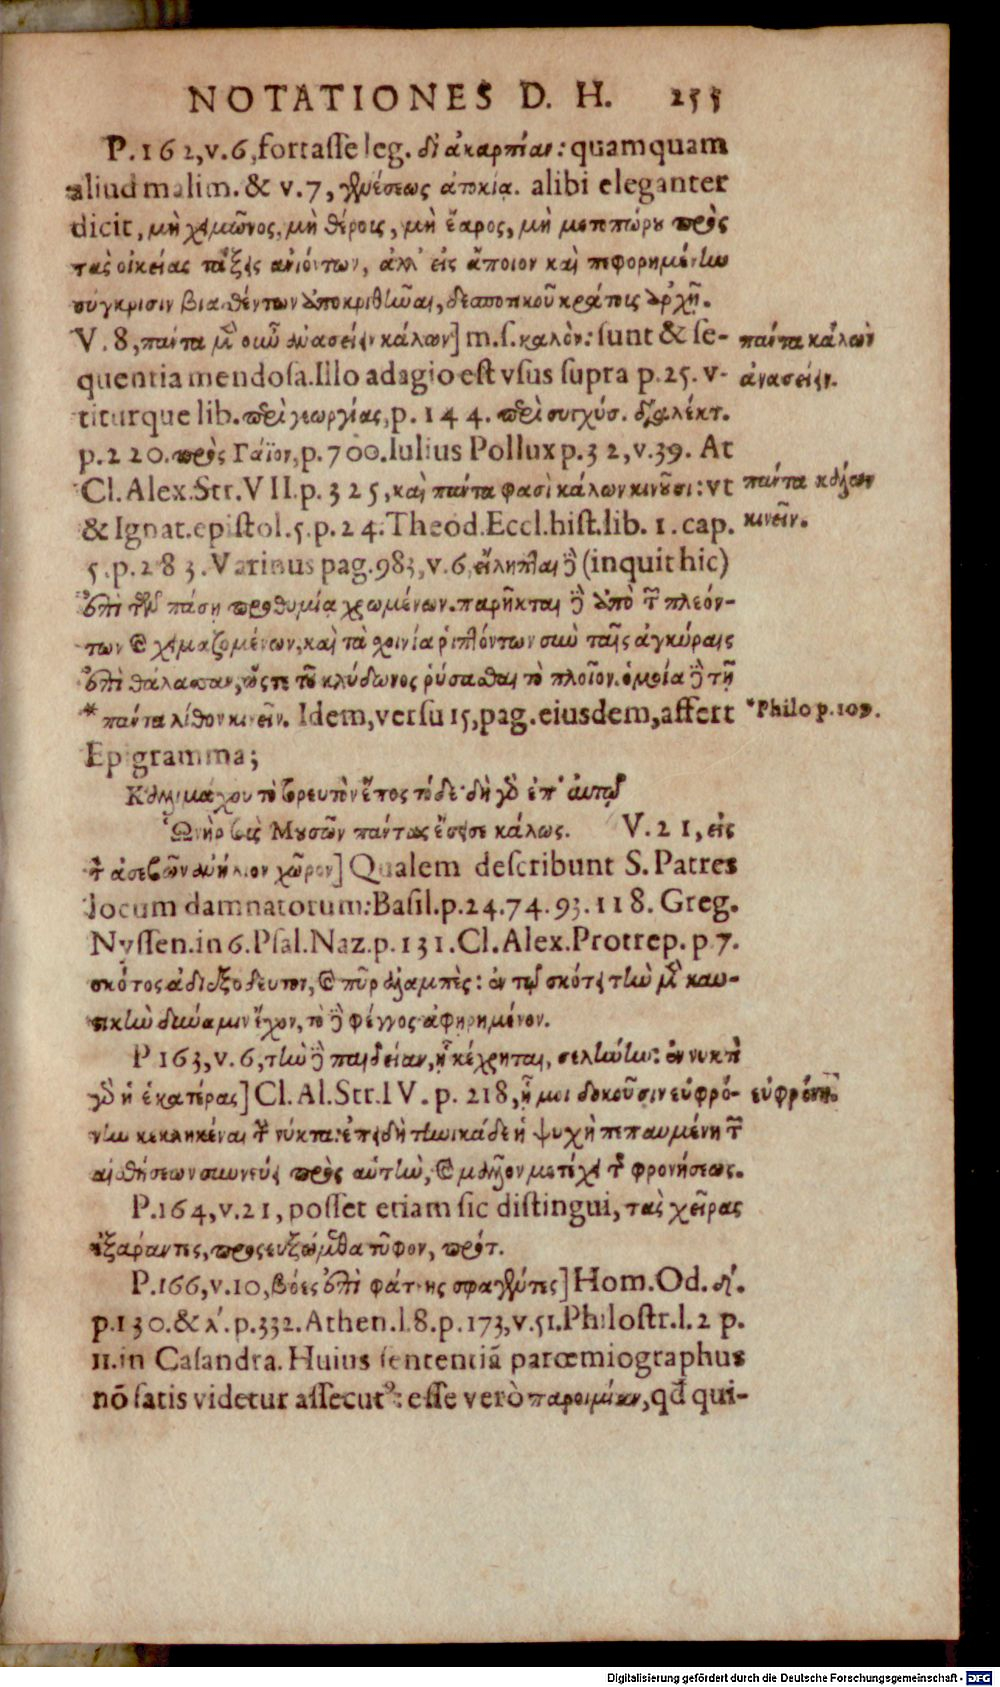 NOTATIONES D. H. 255
P.162,v.6,fortasse leg. δι' ἀκαρπίαν: quamquam
aliud malim. & v.7, γενέσεως ἀτοκία. alibi eleganter
dicit, μὴ χειμῶνος, μὴ θέρους, μὴ ἔαρος, μὴ μετοπώρου πρὸς
τὰς οἰκείας τάξεις ἀνιόντων, ἀλλ' εἰς ἄποιον καὶ πεφορημένην
σύγκρισιν βιασθέντων ὑποκριθῆναι, δεσποτικοῦ κράτους ἀρχῇ.
V.8, πάντα μὲν οὖν ἀνασείειν κάλων] m.s. καλὸν: sunt & se-
quentia mendosa. Illo adagio est vsus supra p.25. v-
titurque lib. περὶ γεωργίας, p.144. περὶ συγχύσ. διαλέκτ.
p.220. πρὸς Γάϊον, p.700. Iulius Pollux p.32,v.39. At
Cl. Alex. Str. VII.p.325, καὶ πάντα φασὶ κάλων κινοῦσι: vt
& Ignat. epistol.5.p.24. Theod. Eccl. hist. lib. 1. cap.
5.p.283. Varinus pag.983,v.6, εἴληπται δὲ (inquit hic)
ἐπὶ τῶν πάσῃ προθυμίᾳ χρωμένων. παρῆκται δὲ ἀπὸ τῶν πλεόν-
των καὶ χειμαζομένων, καὶ τὰ σχοινία ῥιπτόντων σὺν ταῖς ἀγκύραις
ἐπὶ θάλασσαν, ὥστε τοῦ κλύδωνος ῥύσασθαι τὸ πλοῖον. ὁμοία δὲ τῇ
* πάντα λίθον κινεῖν. Idem, versu 15, pag. eiusdem, affert
Epigramma;
Καλλιμάχου τὸ τορευτὸν ἔπος τόδε· δὴ γὰρ ἐπ' αὐτῷ
Ὡνὴρ τοὺς Μουσῶν πάντας ἔσεισε κάλως. V.21, εἰς
τὸν ἀσεβῶν ἀνήλιον χῶρον] Qualem describunt S. Patres
locum damnatorum: Basil.p.24.74.93.118. Greg.
Nyssen. in 6. Psal. Naz.p.131. Cl. Alex. Protrep. p 7.
σκότος ἀδιεξόδευτον, καὶ πῦρ ἀλαμπὲς: ἐν τῷ σκότει τὴν μὲν καυ-
στικὴν δύναμιν ἔχον, τὸ δὲ φέγγος ἀφῃρημένον.
P 163, v.6, τὴν δὲ παιδείαν, ᾗ κέχρηται, σελήνην: ἐν νυκτὶ
γὰρ ἡ ἑκατέρας] Cl. Al. Str. IV. p. 218, ᾗ μοι δοκοῦσιν εὐφρό-
νην κεκληκέναι τὴν νύκτα: ἐπειδὴ τηνικάδε ἡ ψυχὴ πεπαυμένη τῶν
αἰσθήσεων συννεύει πρὸς αὑτὴν, καὶ μᾶλλον μετέχει τῆς φρονήσεως.
P.164, v.21, posset etiam sic distingui, τὰς χεῖρας
ἐξάραντες, προσευξώμεθα τῦφον, πρότ.
P.166, v.10, βόες ἐπὶ φάτνης σφαγέντες] Hom. Od. δ'.
p.130. & λ'. p.332. Athen. l.8. p.173, v.51. Philostr. l.2 p.
11. in Casandra. Huius sententiã parœmiographus
nõ satis videtur assecut9: esse verò παροιμίαν, qđ qui-
πάντα κάλων
ἀνασείειν.
πάντα κάλων
κινεῖν.
*Philo p.109.
εὐφρόνη.
Digitalisierung gefördert durch die Deutsche Forschungsgemeinschaft - DFG